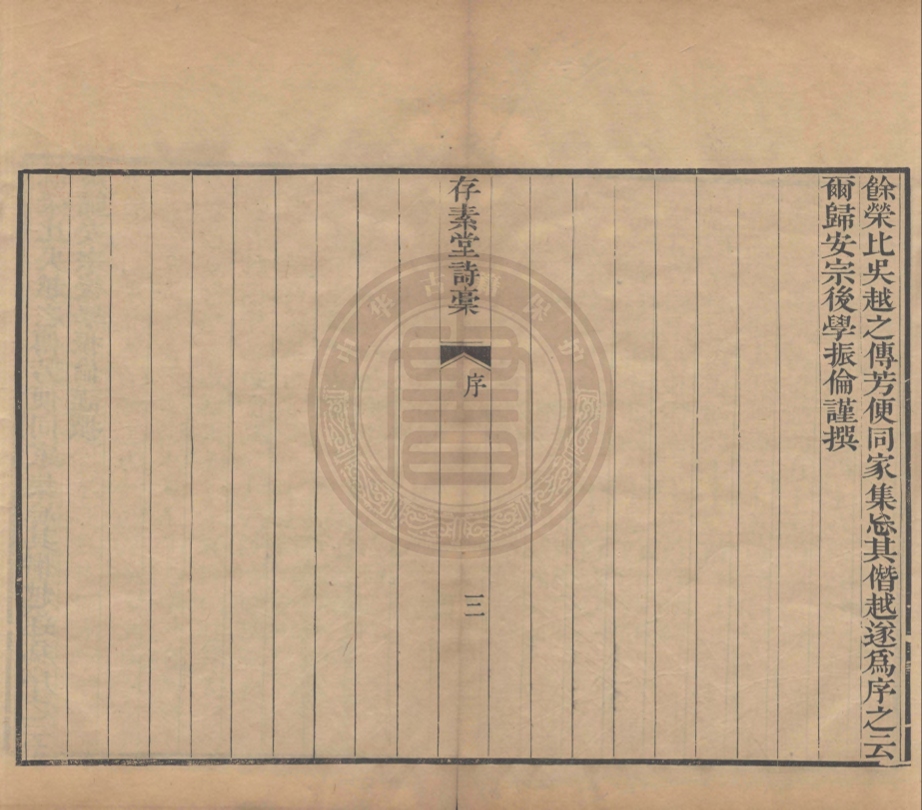 餘榮比吳越之傳芳便同家集忘其僭越遂爲序之云
爾歸安宗後學振倫謹撰
存素堂詩稾
序
三